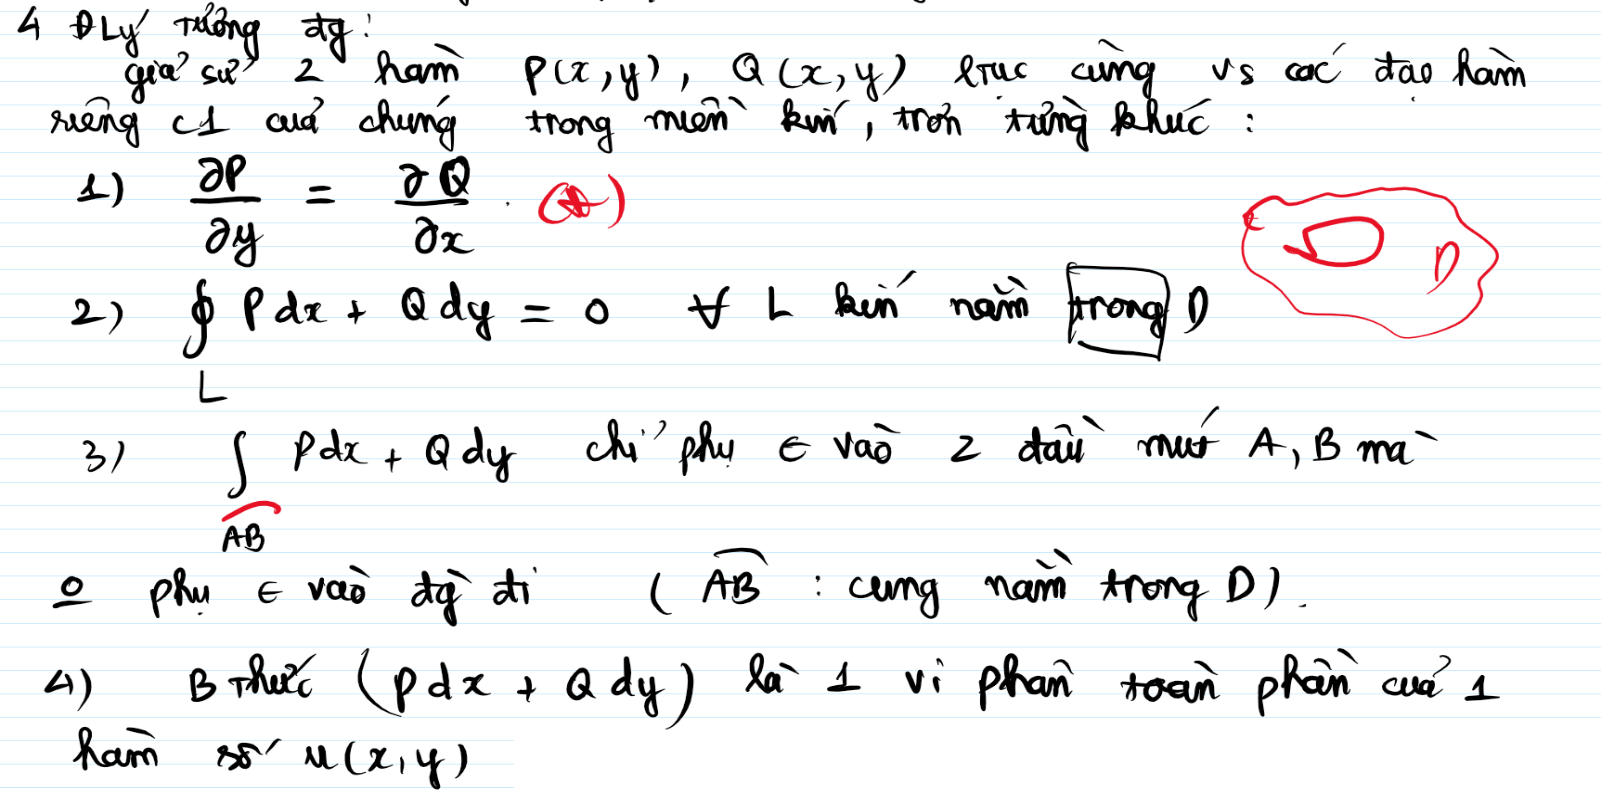 4 ĐLý Tương đg:
giả sử 2 hàm P(x,y), Q(x,y) ltục cùng vs các đạo hàm
riêng c1 của chúng trong miền kín, trơn từng khúc:
1) ∂P/∂y = ∂Q/∂x. (*)
2) ∮ Pdx + Qdy = 0 ∀ L kín nằm trong D
L
D
3) ∫ Pdx + Qdy chỉ phụ ∈ vào 2 đầu mút A, B mà
AB
0 phụ ∈ vào đg đi (AB : cung nằm trong D).
4) B thức (Pdx + Qdy) là 1 vi phân toàn phần của 1
hàm số u(x,y)